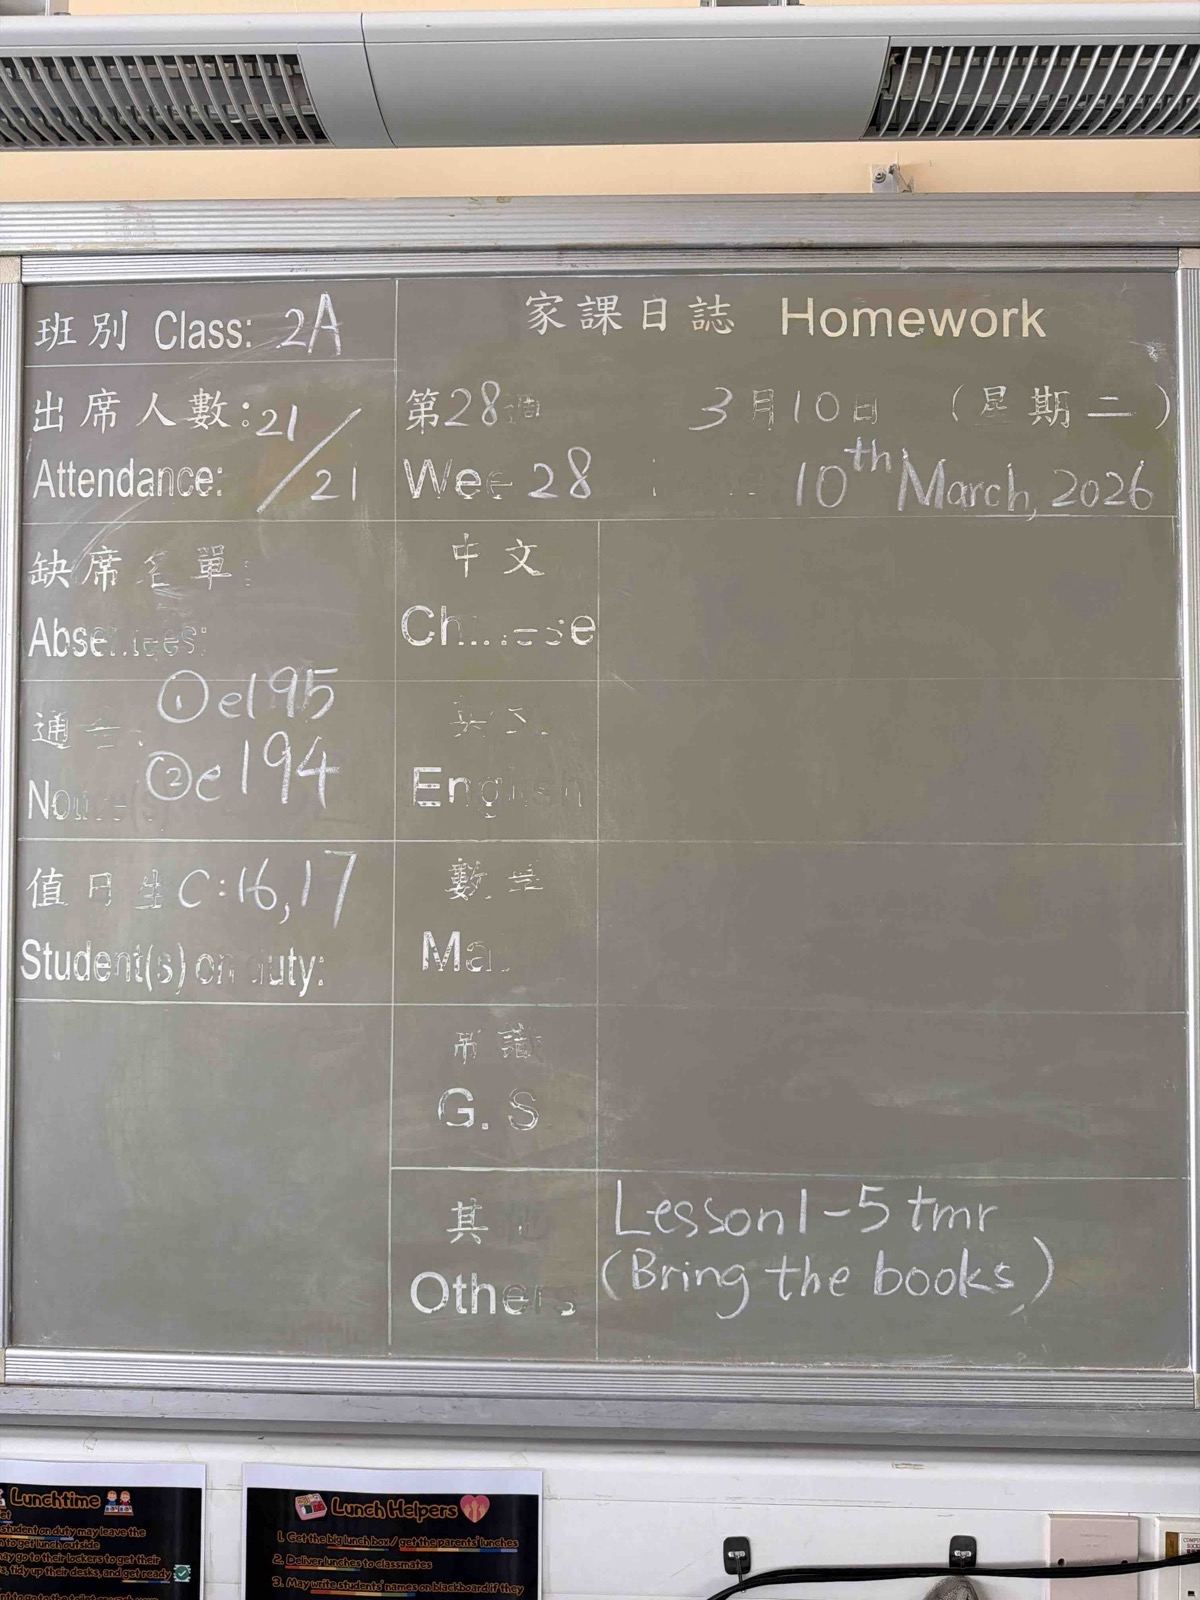 班別 Class: 2A
家課日誌 Homework
出席人數: 21/21
Attendance:
第28週 3月10日 (星期二)
Wee 28 10th March, 2026
缺席名單:
Absentees:
通告: ①e195
②e194
值日生 C:16,17
Student(s) on duty:
中文
Chinese
英文
English
數學
Ma
常識
G. S
其他
Others
Lesson 1-5 tmr
(Bring the books)
Lunchtime
student on duty may leave the
to get lunch outside
may go to their lockers to get their
tidy up their desks, and get ready
Lunch Helpers
1. Get the big lunch box / get the parents' lunches
2. Deliver lunches to classmates
3. May write students' names on blackboard if they